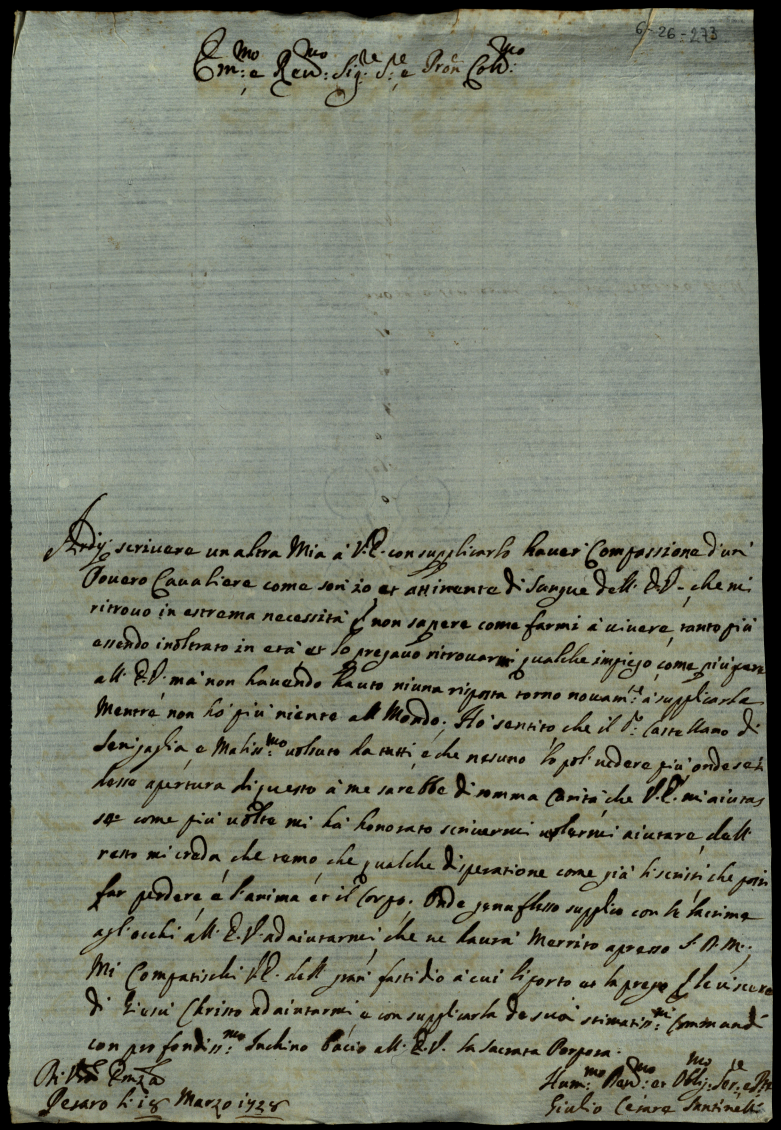 6-26-273
Em:mo e Rev:mo Sig:re S:re e Pron Col:mo
Ardij scrivere un altra Mia à V.E. con supplicarlo haver Compassione d'un
Povero Cavaliere come son io et attinente di Sangue dell'E.V. che mi
ritrovo in estrema necessità non sapere come farmi à vivere, tanto più
essendo inoltrato in età et lo pregavo ritrovarmi qualche impiego come
all'E.V. mà non havendo hauto niuna riposta torno novam:te à supplicarla
Mentre non hò più niente al Mondo; Hò sentito che il Castellano di
Senigaglia è voluto da tutti, e che nesuno lo pol vedere più onde se
dasse apertura di questo à me sarebbe di somma Carità che V.E. mi aiutas
se come più volte mi hà honorato scrivermi volermi aiutare, dell
resto mi creda che temo che qualche disperatione come già li scrissi che possi
far perdere è l'anima et il Corpo. Onde genuflesso supplico con le lacrime
agl'occhi all'E.V. ad aiutarmi che ne haurà Merrito apresso
Mi Compatischi V.E. dell gran fastidio à cui li porto et la prego le viscere
di Giesù Christo ad aiutarmi e con supplicarla de suoi stimatiss:mi Commandi
con profondiss:mo Inchino bacio all'E.V. la Sacrata Porpora.
Di V.ra Em.za
Pesaro li 18 Marzo 1728
Hum:mo Dev:mo et Obblig:mo Ser:re
Giulio Cesare Santinelli